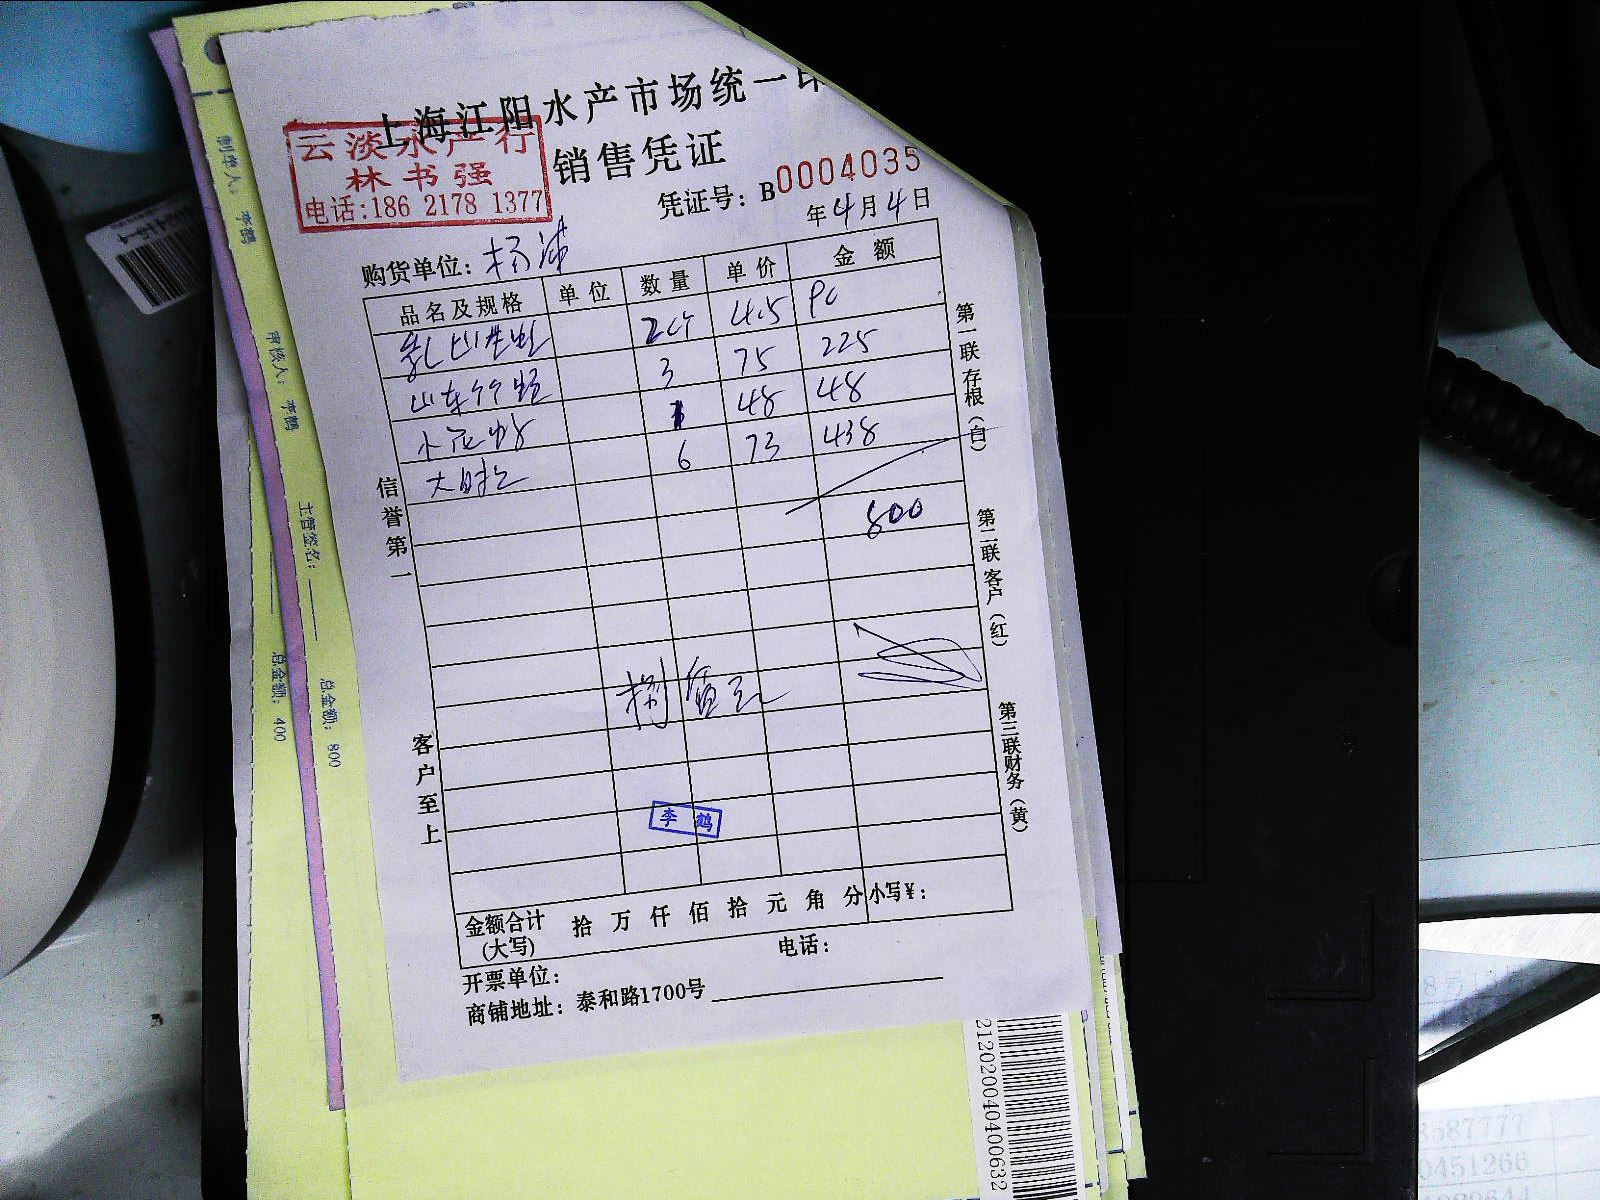 上海江阳水产市场统一印
销售凭证
云淡水产行
林书强
电话:186 2178 1377
凭证号: B0004035
年4月4日
购货单位: 杨浦
品名及规格 单位 数量 单价 金额
乳山生蚝 2个 4.5 90
山东竹蛏 3 75 225
小花蛤 1 48 48
大 6 73 438
800
捌佰元
李鹤
金额合计(大写) 拾 万 仟 佰 拾 元 角 分 小写¥:
电话:
开票单位:
商铺地址: 泰和路1700号
信誉第一
客户至上
第一联存根(白)
第二联客户(红)
第三联财务(黄)
制单人: 李鹤
审核人: 李鹤
主管签名:
总金额: 400
总金额: 800
2120200404000632
8587777
0451266